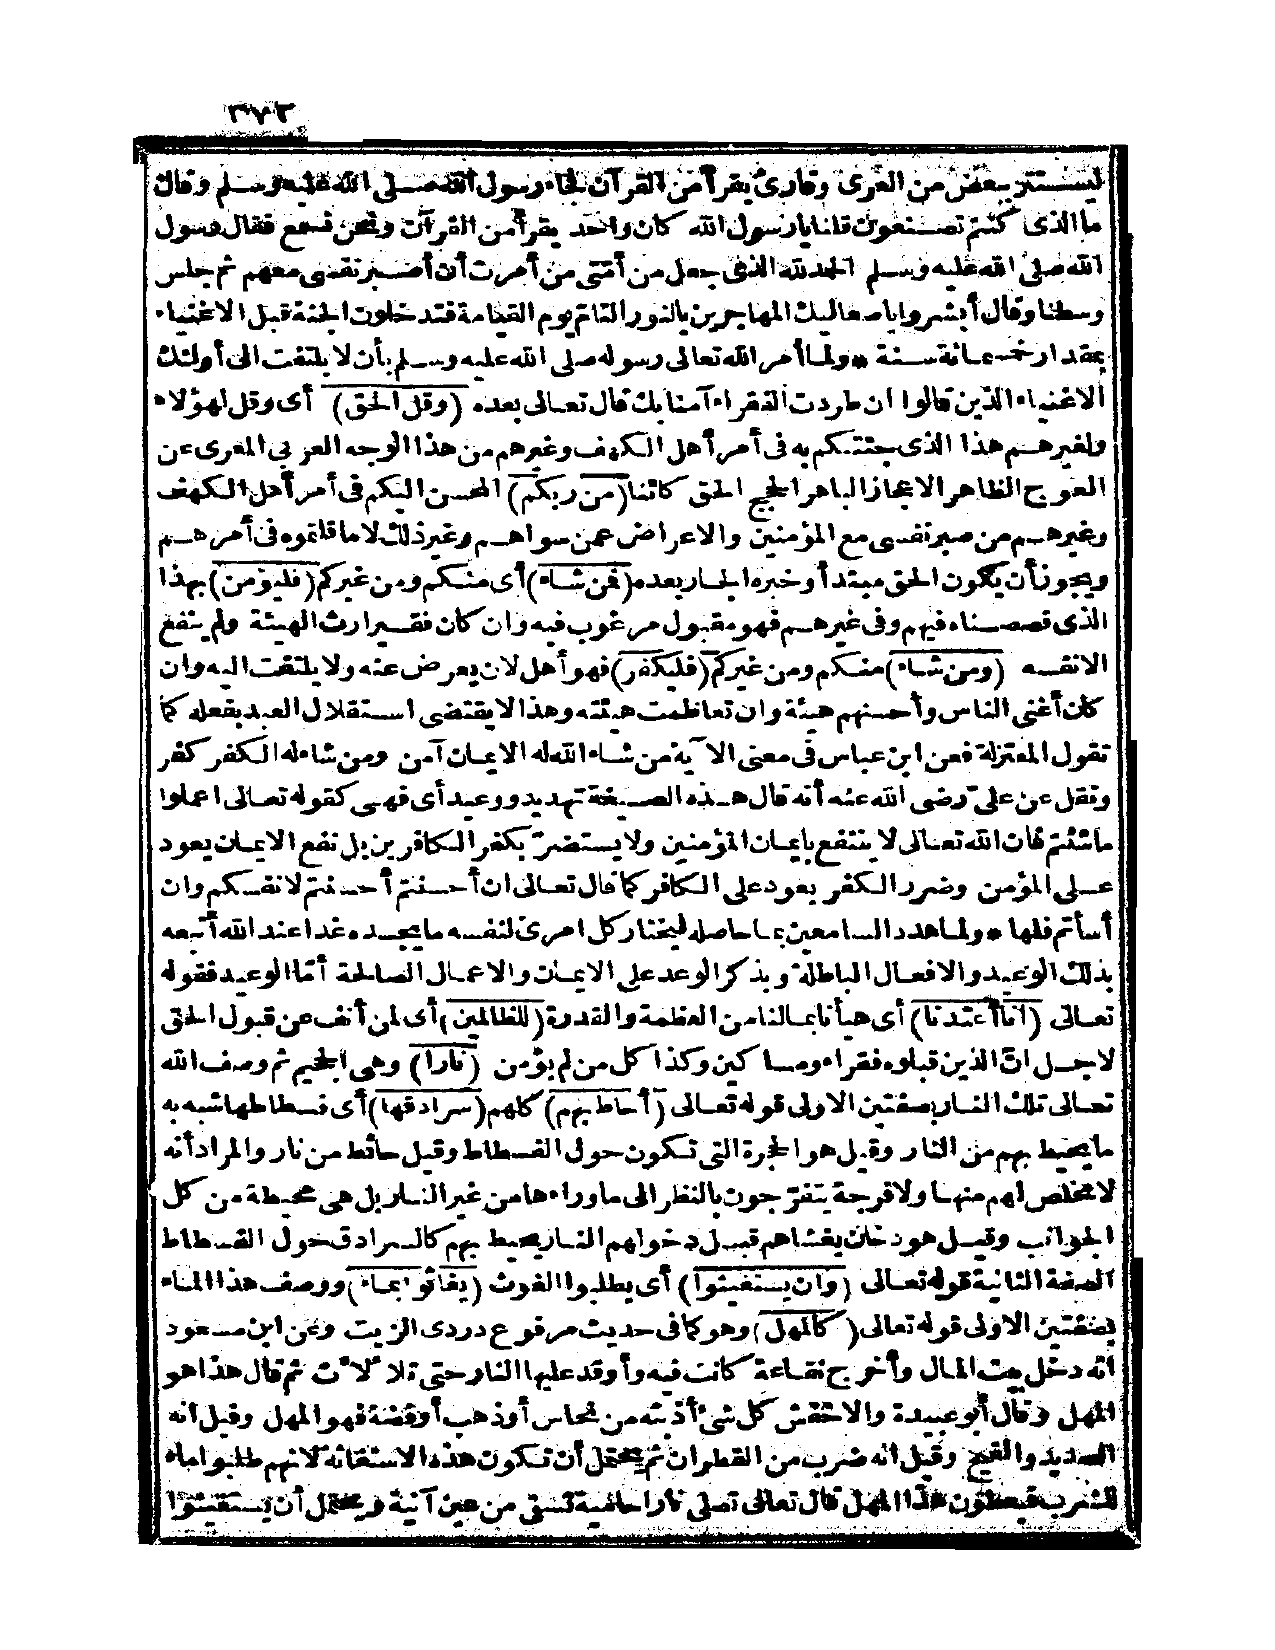 ٣٧٣
ليستتر ببعض من العرى وقارئ يقرأ من القرآن فجاء رسول الله صلى الله عليه وسلم وقال
ما الذى كنتم تصنعون قلنا يا رسول الله كان واحد يقرأ من القرآن ونحن نسمع فقال رسول
الله صلى الله عليه وسلم الحمد لله الذى جعل من أمتى من أمرت أن أصبر نفسى معهم ثم جلس
وسطنا وقال أبشروا يا صعاليك المهاجرين بالنور التام يوم القيامة فتدخلون الجنة قبل الاغنياء
بمقدار خمسمائة سنة * ولما أمر الله تعالى رسوله صلى الله عليه وسلم بأن لا يلتفت الى أولئك
الاغنياء الذين قالوا ان طردت الفقراء آمنا بك قال تعالى بعده (وقل الحق) أى وقل لهؤلاء
ولغيرهم هذا الذى جئتكم به فى أمر أهل الكهف وغيرهم من هذا الوجه العربى المعرى عن
العوج الظاهر الاعجاز الباهر الحجج الحق كائنا (من ربكم) المحسن اليكم فى أمر أهل الكهف
وغيرهم من صبر نفسى مع المؤمنين والاعراض عمن سواهم وغير ذلك لا ما قلتموه فى أمرهم
ويجوز أن يكون الحق مبتدأ وخبره الجار بعده (فمن شاء) أى منكم ومن غيركم (فليؤمن) بهذا
الذى قصصناه فيهم وفى غيرهم فهو مقبول مرغوب فيه وان كان فقيرا رث الهيئة ولم ينفع
الا نفسه (ومن شاء) منكم ومن غيركم (فليكفر) فهو أهل لان يعرض عنه ولا يلتفت اليه وان
كان أغنى الناس وأحسنهم هيئة وان تعاظمت هيئته وهذا لا يقتضى استقلال العبد بفعله كما
تقول المعتزلة فعن ابن عباس فى معنى الآية من شاء الله له الايمان آمن ومن شاء له الكفر كفر
ونقل عن علىّ رضى الله عنه أنه قال هذه الصيغة تهديد ووعيد أى فهى كقوله تعالى اعملوا
ما شئتم فان الله تعالى لا ينتفع بايمان المؤمنين ولا يستضرّ بكفر الكافرين بل نفع الايمان يعود
على المؤمن وضرر الكفر يعود على الكافر كما قال تعالى ان أحسنتم أحسنتم لانفسكم وان
أسأتم فلها * ولما هدد السامعين بما حاصله ليختار كل امرئ لنفسه ما يجده غدا عند الله أتبعه
بذلك الوعيد والافعال الباطلة وبذكر الوعد على الايمان والاعمال الصالحة أمّا الوعيد فقوله
تعالى (انا أعتدنا) أى هيأنا بما لنا من العظمة والقدرة (للظالمين) أى لمن أنف عن قبول الحق
لاجل انّ الذين قبلوه فقراء ومساكين وكذا كل من لم يؤمن (نارا) وهى الجحيم ثم وصف الله
تعالى تلك النار بصفتين الاولى قوله تعالى (أحاط بهم) كلهم (سرادقها) أى فسطاطها شبه به
ما يحيط بهم من النار وقيل هو الحجرة التى تكون حول الفسطاط وقيل حائط من نار والمراد أنه
لا مخلص لهم منها ولا فرجة يتفرّجون بالنظر الى ما وراءها من غير النار بل هى محيطة من كل
الجوانب وقيل هو دخان يغشاهم قبل دخولهم النار يحيط بهم كالسرادق حول الفسطاط
الصفة الثانية قوله تعالى (وان يستغيثوا) أى يطلبوا الغوث (يغاثوا بماء) ووصف هذا الماء
بصفتين الاولى قوله تعالى (كالمهل) وهو كما فى حديث مرفوع دردى الزيت وعن ابن مسعود
انه دخل بيت المال وأخرج نقاعة كانت فيه وأوقد عليها النار حتى تلألأت ثم قال هذا هو
المهل وقال أبو عبيدة والاخفش كل شئ أذبته من نحاس أو ذهب أو فضة فهو المهل وقيل انه
الصديد والقيح وقيل انه ضرب من القطران ثم يحتمل أن تكون هذه الاستغاثة لانهم طلبوا ماء
للشرب فيعطون هذا المهل قال تعالى تصلى نارا حامية تسقى من عين آنية ويحتمل أن يستغيثوا